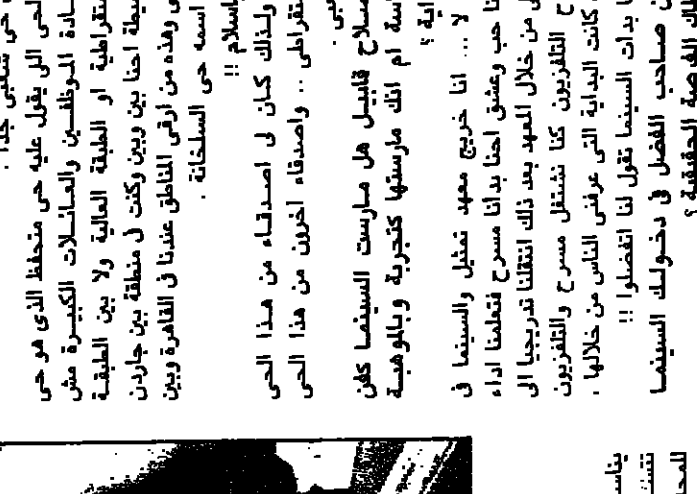 حى شعبى جدا .
الحى اللى يقول عليه حى متحفظ الذى هو حى
ـادة الموظفـين والعـائـلات الكبيـرة مش
ـتقراطية او الطبقة العالية ولا بين الطبقـة
ـيطة احنا بين وبين وكنت ل منطقة بين جاردن
ى وهذه من ارقى المناطق عندنا ل القاهرة وبين
اسمه حى السلخانة .
ياسلام !!
ولذلك كـان لى اصـدقـاء من هـذا الحى
ـتقراطى .. واصدقاء اخرون من هذا الحى
ـبى .
ـلاح قابيـل هل مـارست السينمـا كفن
ـاسة ام انك مارستها كتجربة وبالموهبـة
ـاية ؟
لا ... انا خريج معهد تمثيل والسينما ل
ـا حب وعشق احنا بدانا مسرح فتعلمنا اداء
ـل من خلال المعهد بعد ذلك انتقلنا تدريجيا الى
ـح التلفزيون كنا نشتغل مسرح والتلفزيون
كانت البداية التى عرفنى الناس من خلالها .
ـا بدات السينما تقول لنا اتفضلوا !!
ـن صـاحب الفضل ل دخـولـك السينمـا
ـاك الفرصة الحقيقية ؟
للمحـ
يناسـ